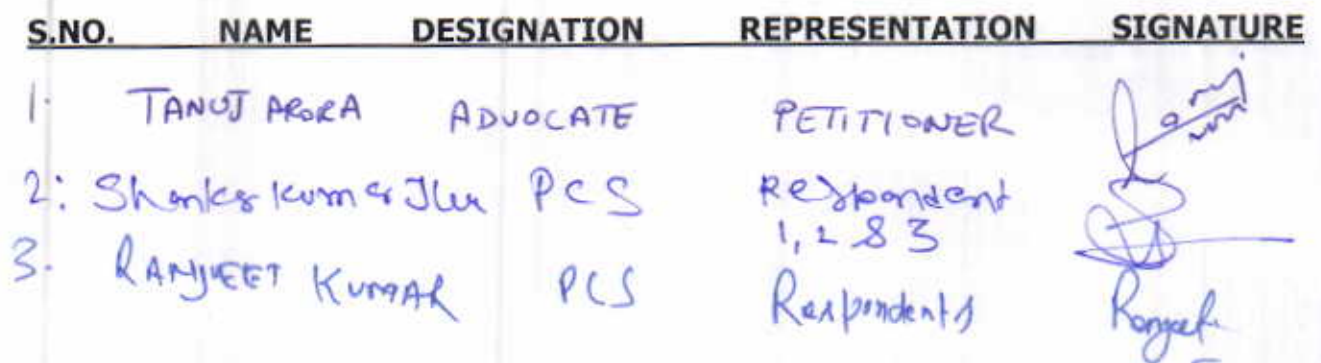 S.NO. NAME DESIGNATION REPRESENTATION SIGNATURE
1. TANUJ ARORA ADVOCATE PETITIONER
2: Shanker Kumar Jha PCS Respondent
1, 2 & 3
3. RANJEET KUMAR PCS Respondents Ranjeet